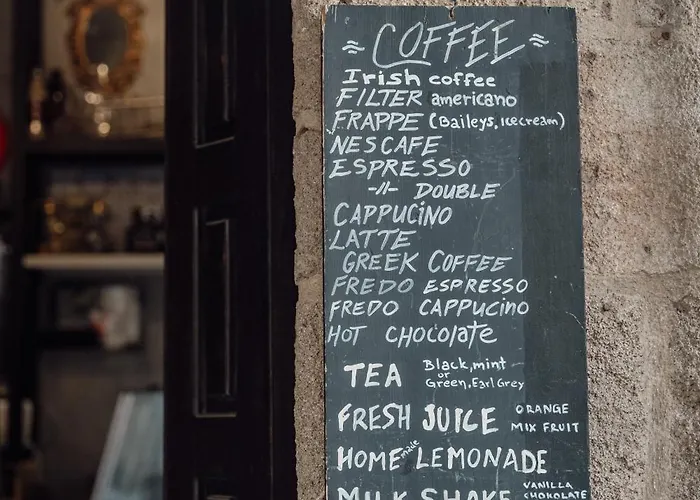 ≈ COFFEE ≈
Irish coffee
FILTER americano
FRAPPE (Baileys, icecream)
NESCAFE
ESPRESSO
-//- DOUBLE
CAPPUCiNO
LATTE
GREEK COFFEE
FREDO ESPRESSO
FREDO CAPPUCiNO
HOT CHOCOLAtE
TEA Black, mint
or
Green, Earl Grey
FRESH JUICE ORANGE
MIX FRUIT
HOME made LEMONADE
MILK SHAKE VANILLA
CHOKOLATE